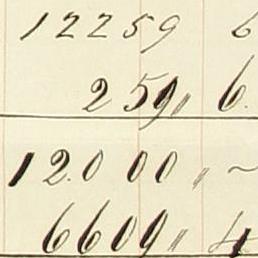 12259 6
259,, 6.
12.000 ,, ~
6609,, 4